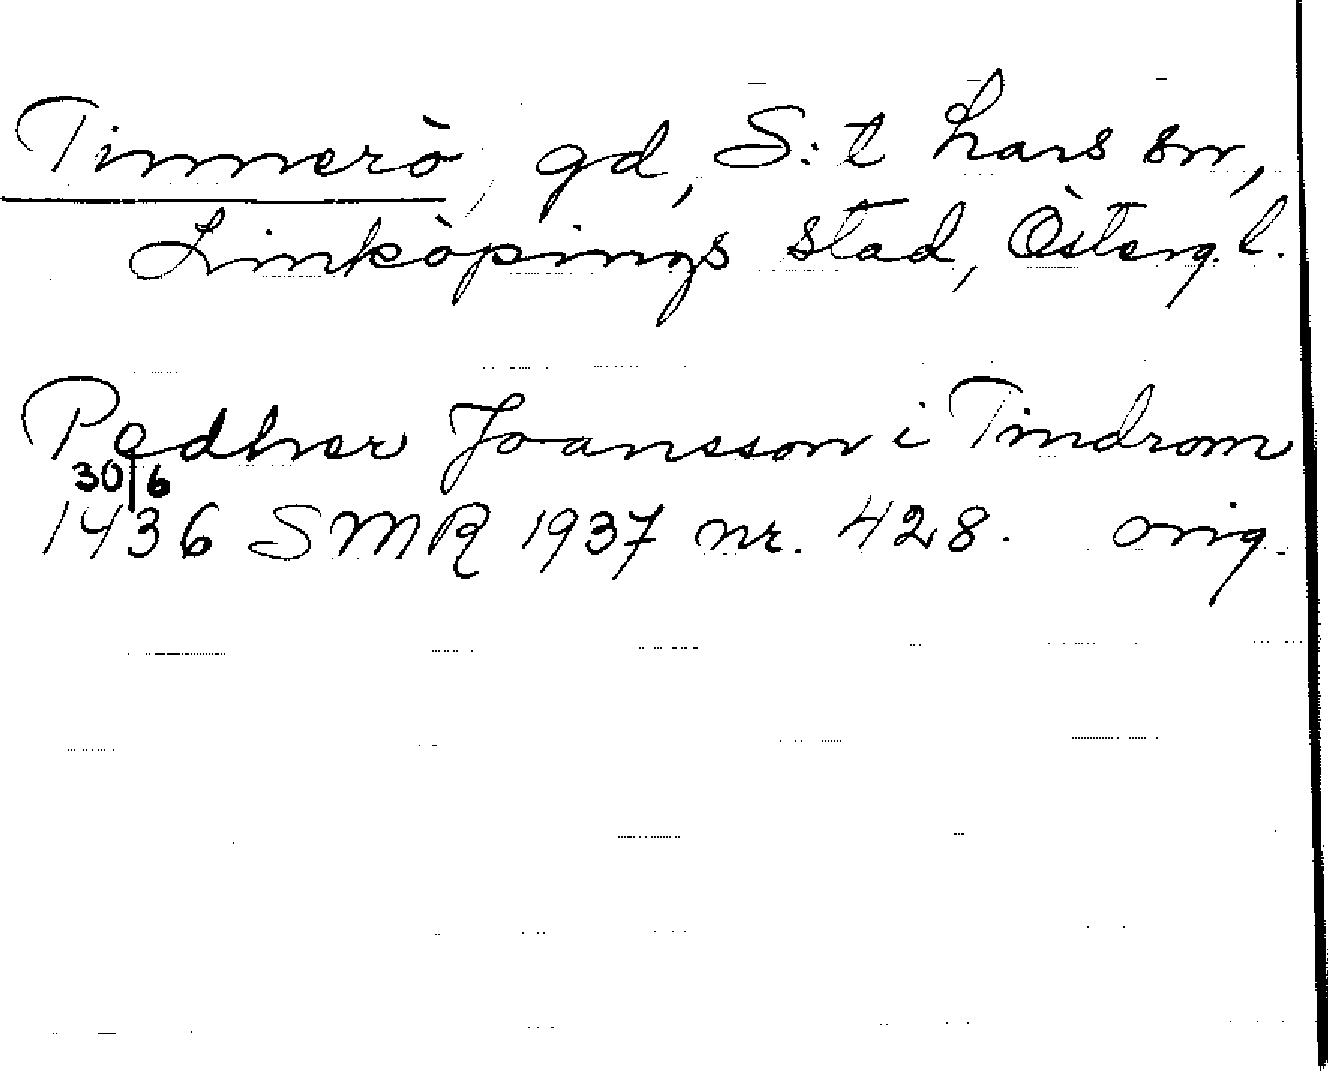 Tinnerö, gd, S:t Lars sn,
Linköpings stad, Österg. l.
Pedher Joansson i Tindrom
30/6
1436 SMR 1937 nr. 428. orig.